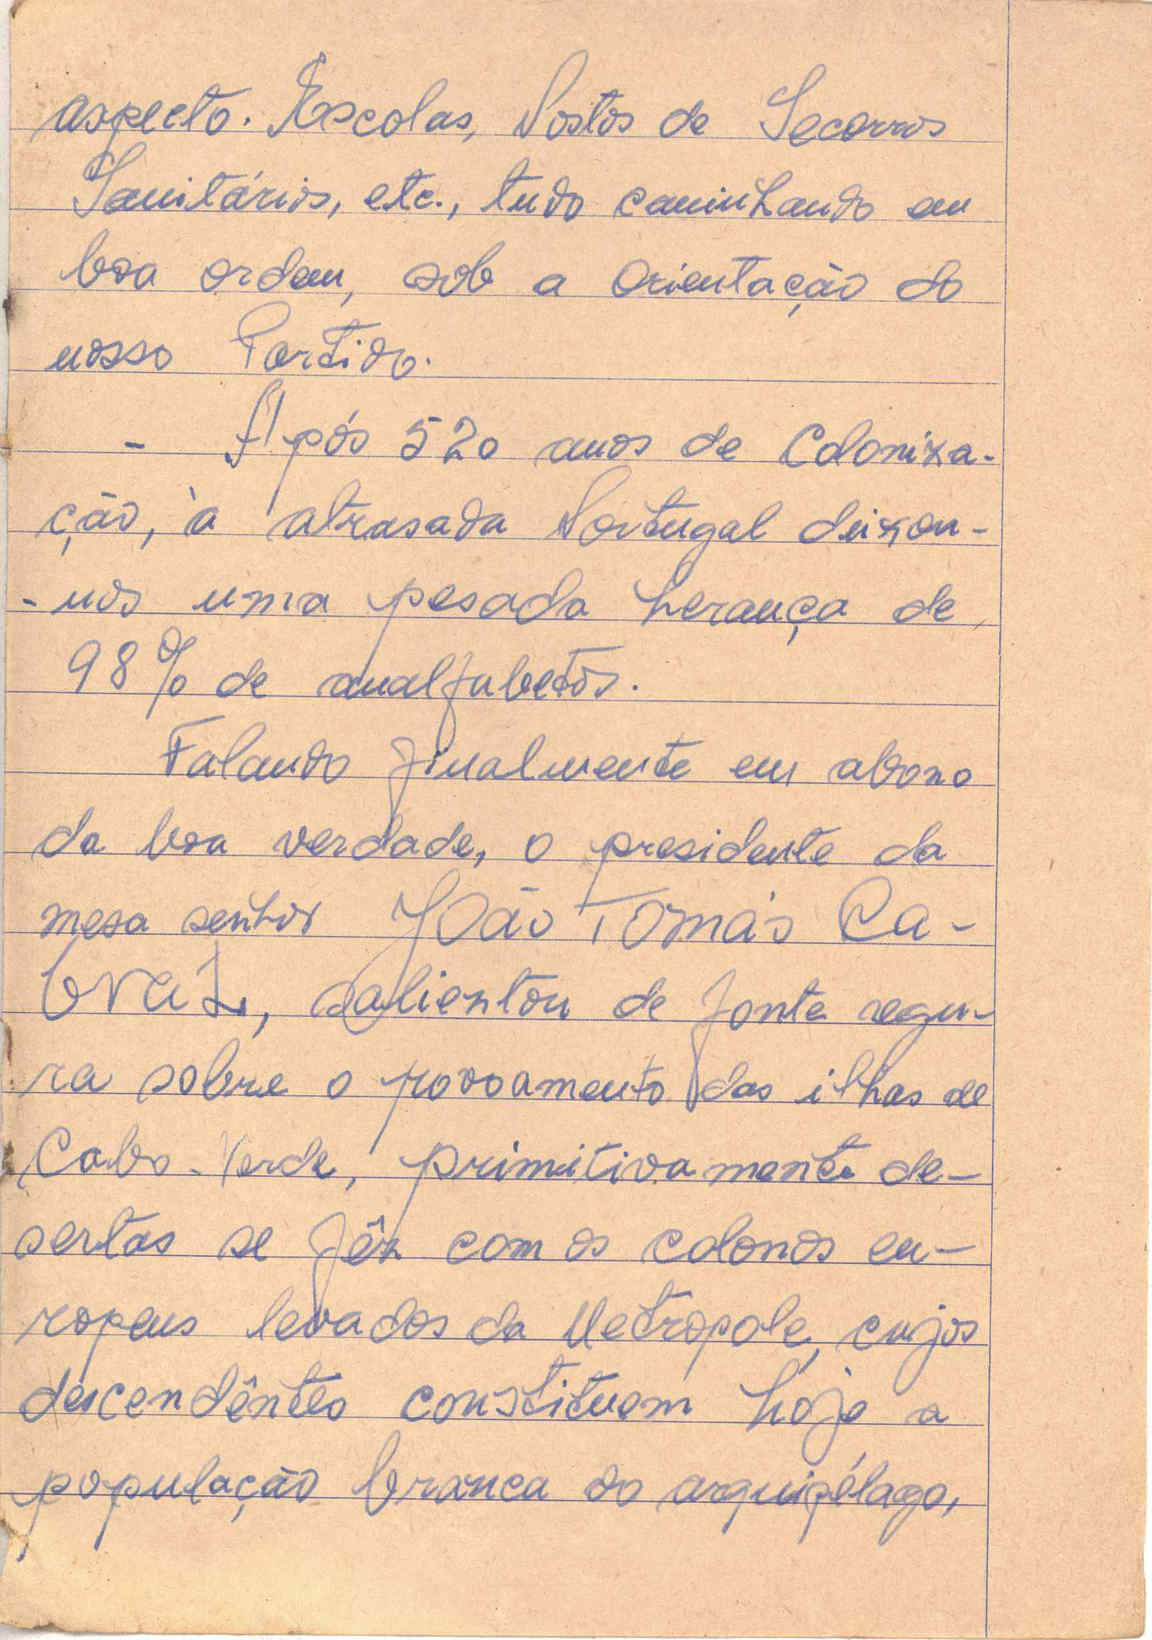 aspecto. Escolas, Postos de Socorros
Sanitários, etc., tudo caminhando em
boa ordem, sob a orientação do
nosso Partido.
- Após 520 anos de Coloniza-
ção, à atrasada Portugal deixou-
-nos uma pesada herança de
98% de analfabetos.
Falando finalmente em abono
da boa verdade, o presidente da
mesa senhor João Tomás Ca-
bral, salientou de fonte segu-
ra sobre o povoamento das ilhas de
Cabo-Verde, primitivamente de-
sertas se fêz com os colonos eu-
ropeus levados da Metropole, cujos
descendêntes constituem hoje a
população branca do arquipélago,